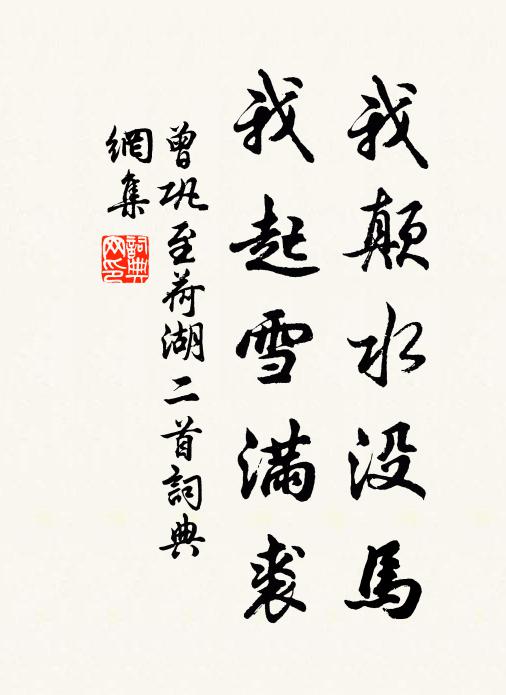 我颠水没馬
我起雪满裘
曾巩至荷湖二首詞典
網集
詞典
网印